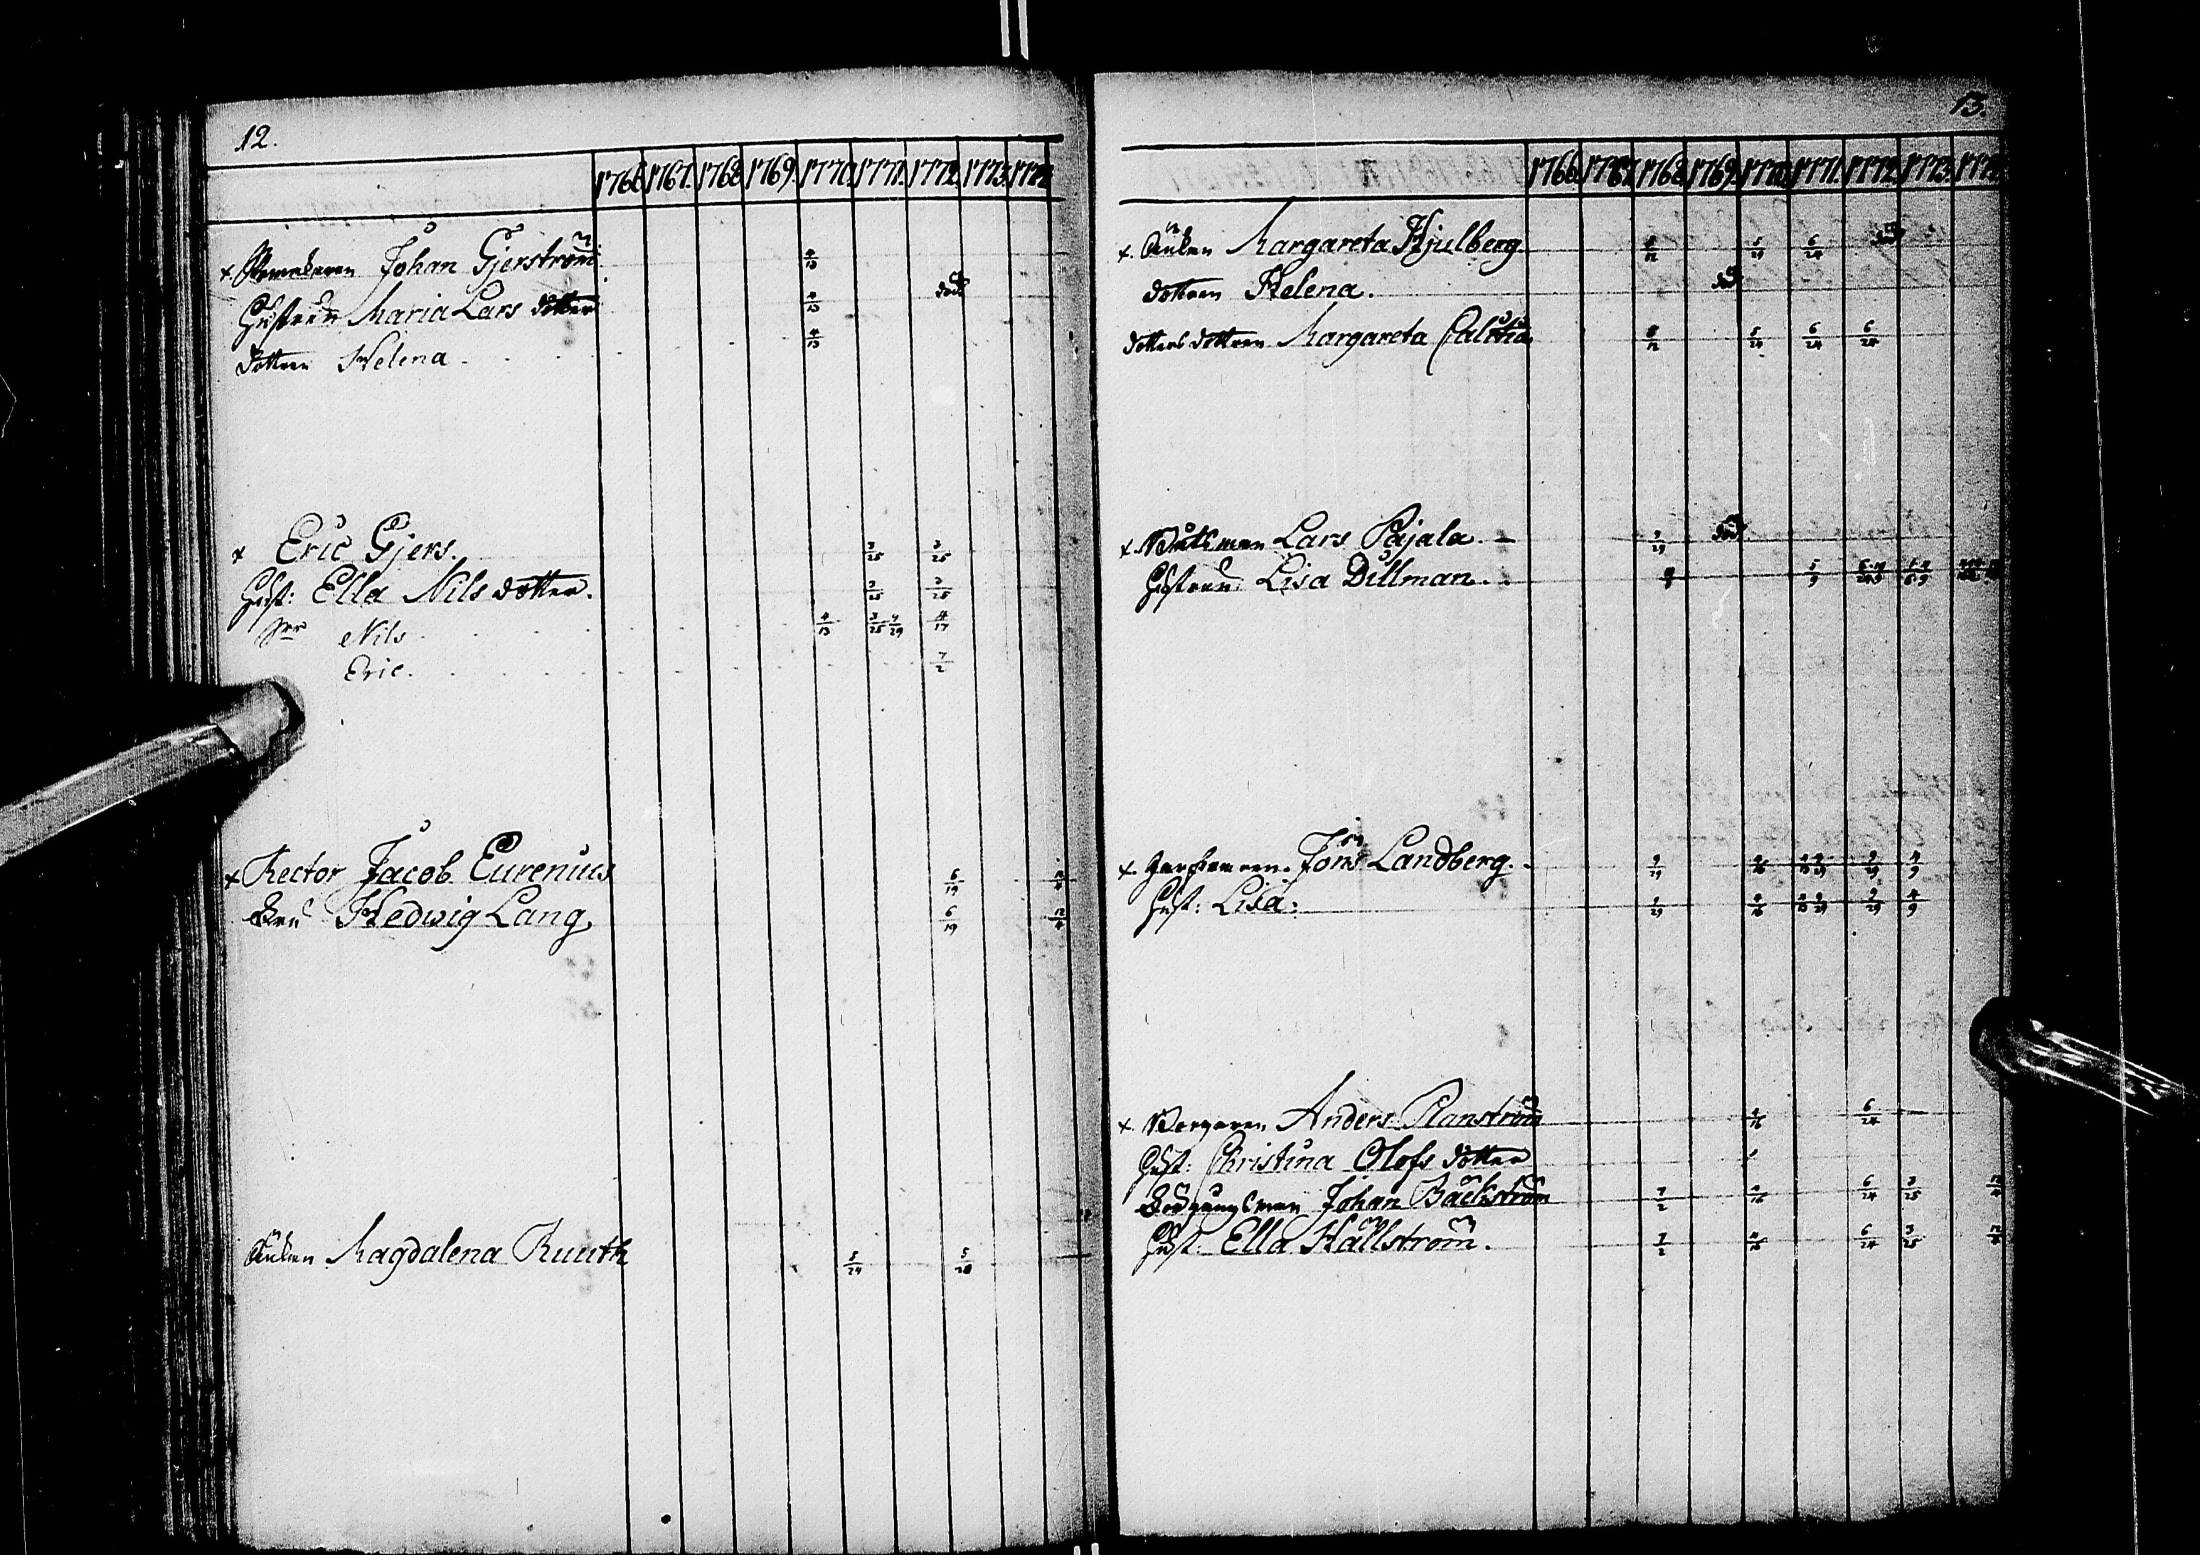 12.
1766 1767. 1768 1769. 1770. 1771. 1772. 1773. 1774
+ Johan Gjerström 4/13
Hustrun Maria Lars dotter 4/13 död
dottren Helena 4/13
+ Eric Gjers. 3/25 3/25
Hust: Ella Nils dotter. 3/25 3/25
Nils 4/13 3/25 4/17
Eric. 7/2
+ Rector Jacob Eurenius 6/19
Hedwig Lang. 6/19 12/4
Änkan Magdalena Ruuth 5/24 5/28
13.
1766 1767. 1768. 1769. 1770. 1771. 1772. 1773. 1774
+. Änkan Margareta Hjulberg 8/12 5/24 6/24 död
dottren Helena. död
dotters dottren Margareta 8/12 5/24 6/24 6/24
+. Båtsman Lars Pajala. död
Hustrun Lisa Dillman. 5/9
+ Jöns Landberg. 4/9
Hust: Lisa. 4/9
+. Borgaren Anders Ranström 4/16 6/24
Hust: Christina Olofs dotter
Johan Bäckström 7/2 4/16 6/24 3/25 12/4
Hust. Ella Hällström. 7/2 4/16 6/24 3/25 12/4